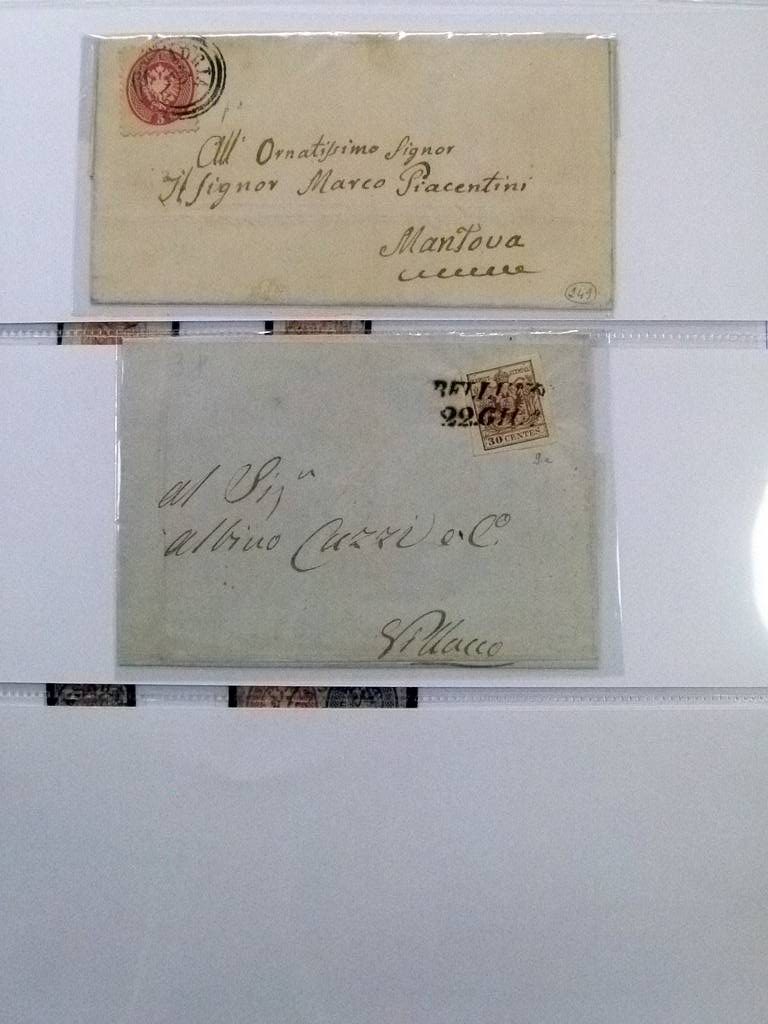 5
All' Ornatissimo Signor
Il Signor Marco Piacentini
Mantova
249
BELLUNO
22.GIU.
30 CENTES
9a
al Sigʳ
albino Cuzzi e Cº.
Villacco